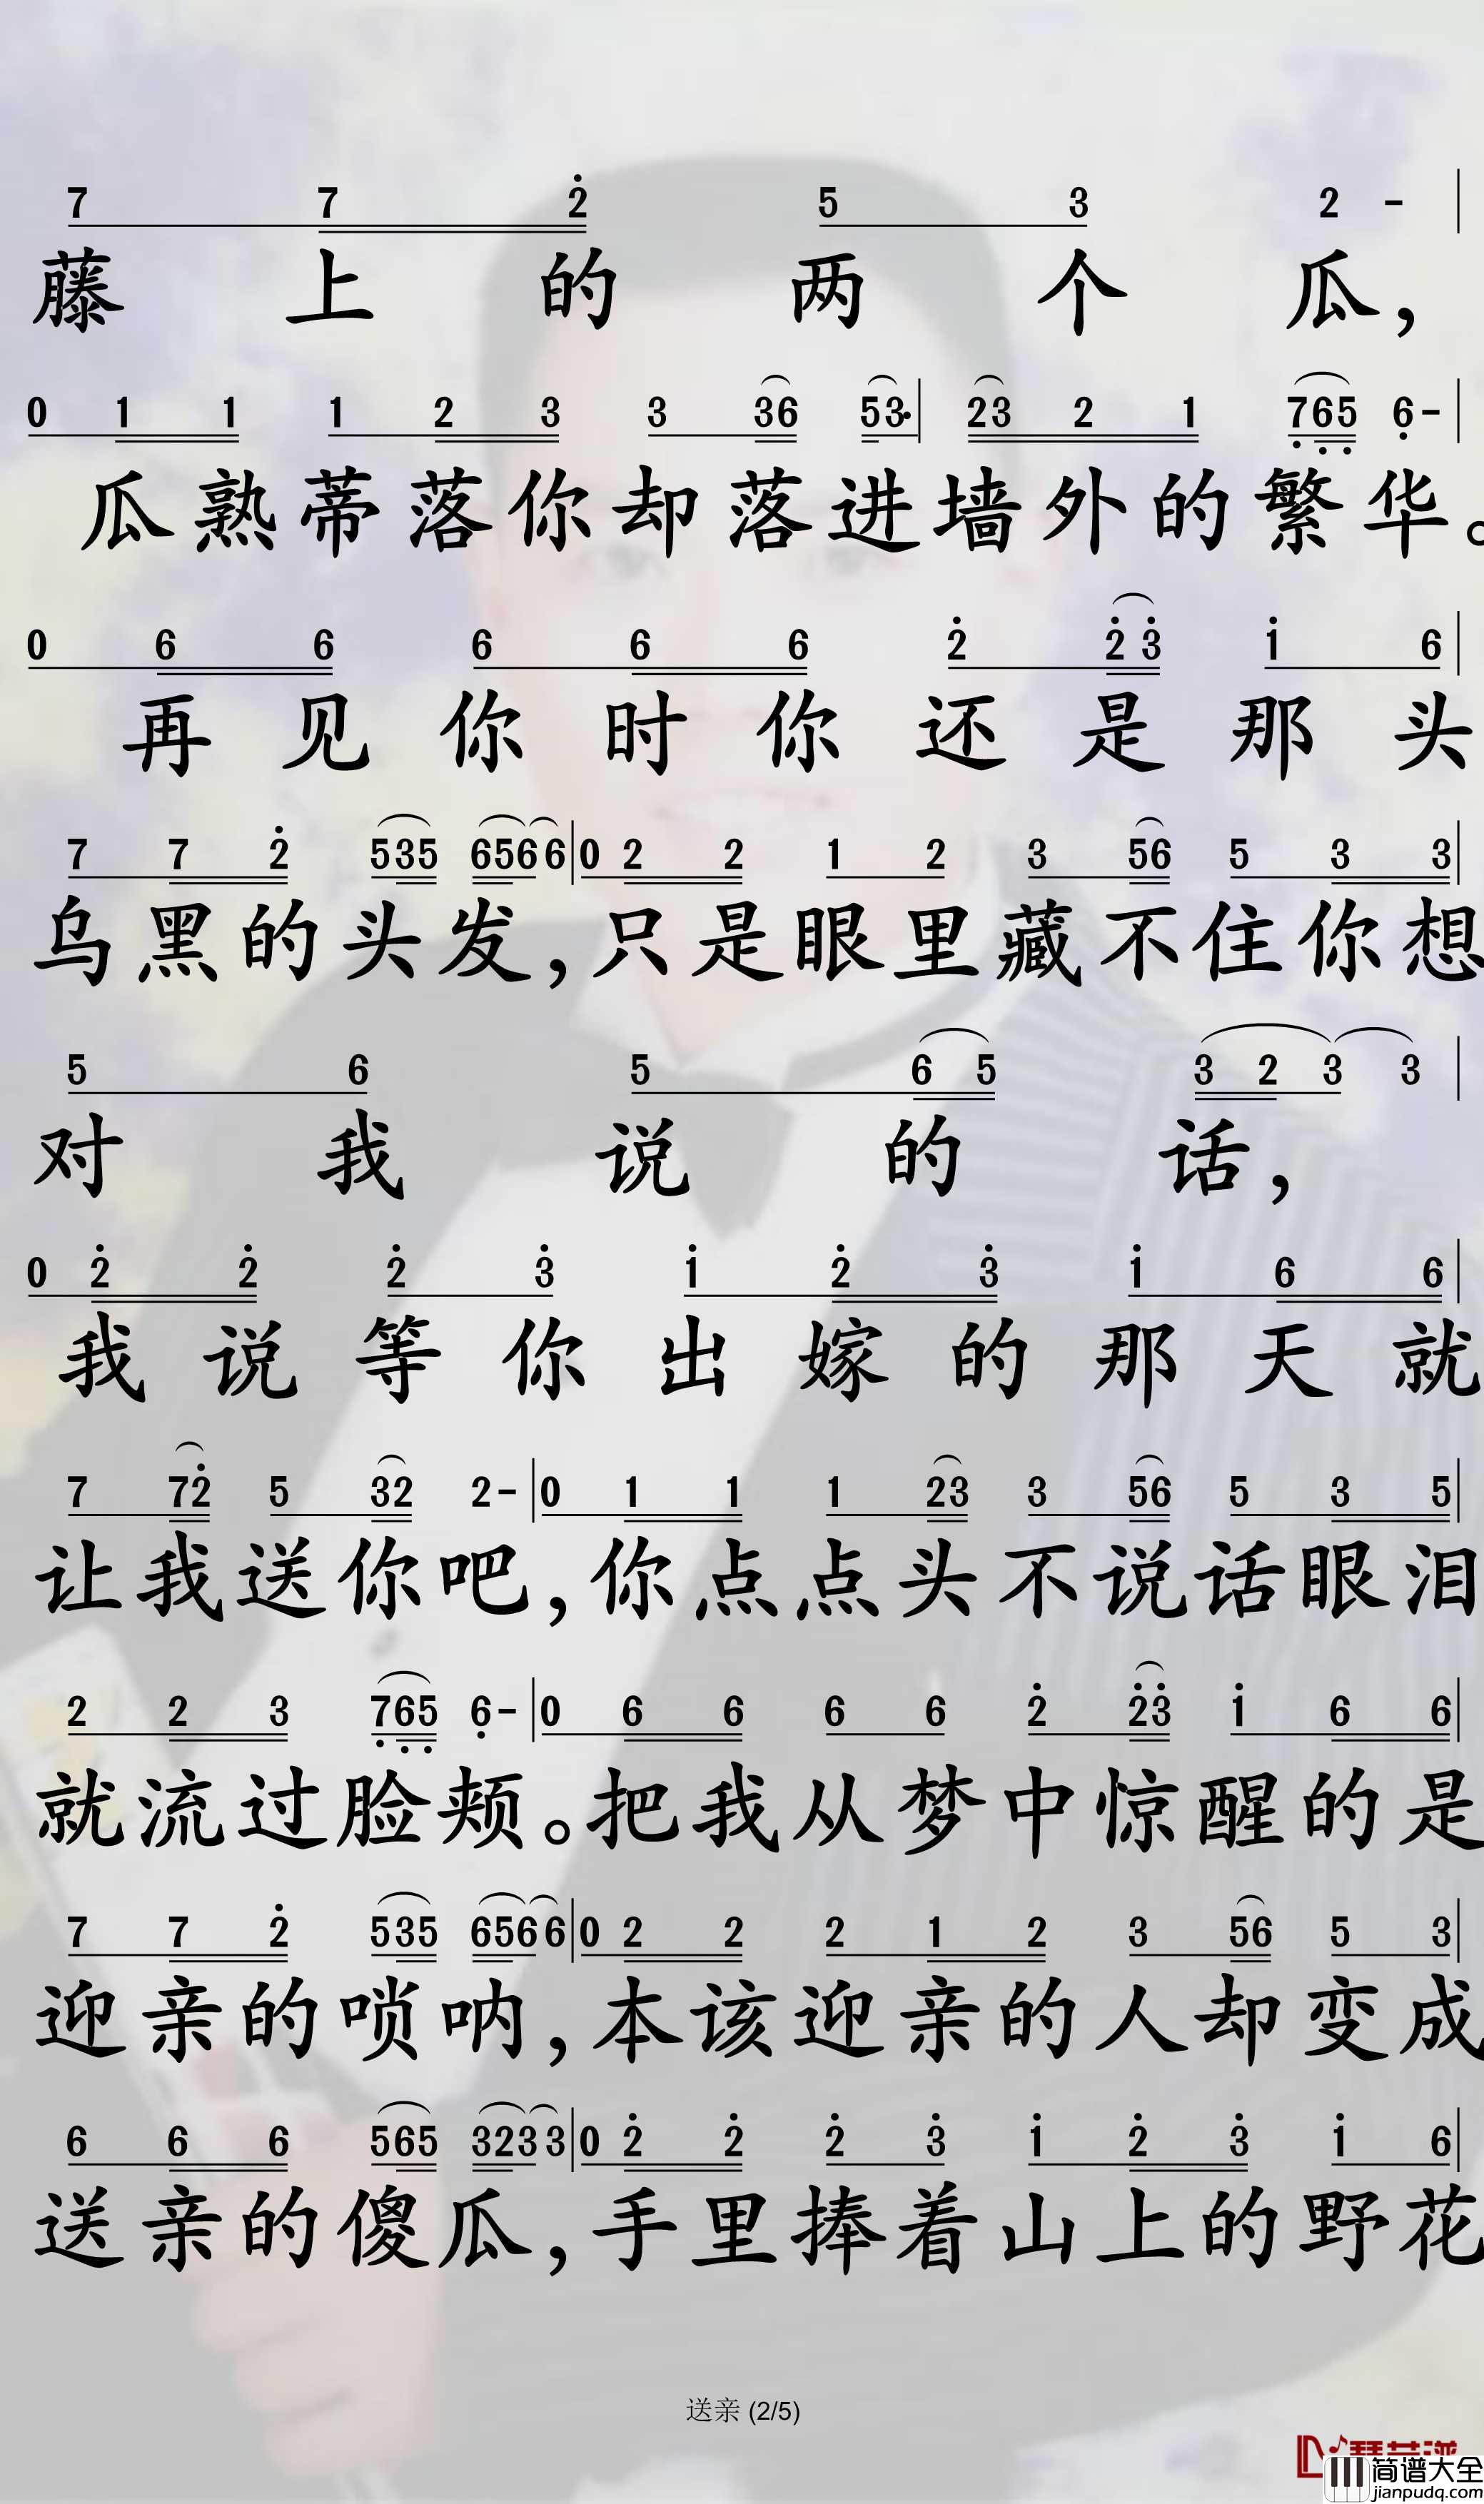 7 7 2̇ 5 3 2 - |
藤上的两个瓜，
0 1 1 1 2 3 3 36 53· | 23 2 1 7̣6̣5̣ 6̣- |
瓜熟蒂落你却落进墙外的繁华。
0 6 6 6 6 6 2̇ 2̇3̇ 1̇ 6 |
再见你时你还是那头
7 7 2̇ 535 6566 | 0 2 2 1 2 3 56 5 3 3 |
乌黑的头发，只是眼里藏不住你想
5 6 5 6 5 3 2 3 3 |
对我说的话，
0 2̇ 2̇ 2̇ 3̇ 1̇ 2̇ 3̇ 1̇ 6 6 |
我说等你出嫁的那天就
7 72̇ 5 32 2- | 0 1 1 1 23 3 56 5 3 5 |
让我送你吧，你点点头不说话眼泪
2 2 3 7̣6̣5̣ 6̣- | 0 6 6 6 6 2̇ 2̇3̇ 1̇ 6 6 |
就流过脸颊。把我从梦中惊醒的是
7 7 2̇ 535 6566 | 0 2 2 2 1 2 3 56 5 3 |
迎亲的唢呐，本该迎亲的人却变成
6 6 6 565 3233 | 0 2̇ 2̇ 2̇ 3̇ 1̇ 2̇ 3̇ 1̇ 6 |
送亲的傻瓜，手里捧着山上的野花
送亲 (2/5)
简谱大全
jianpudq.com